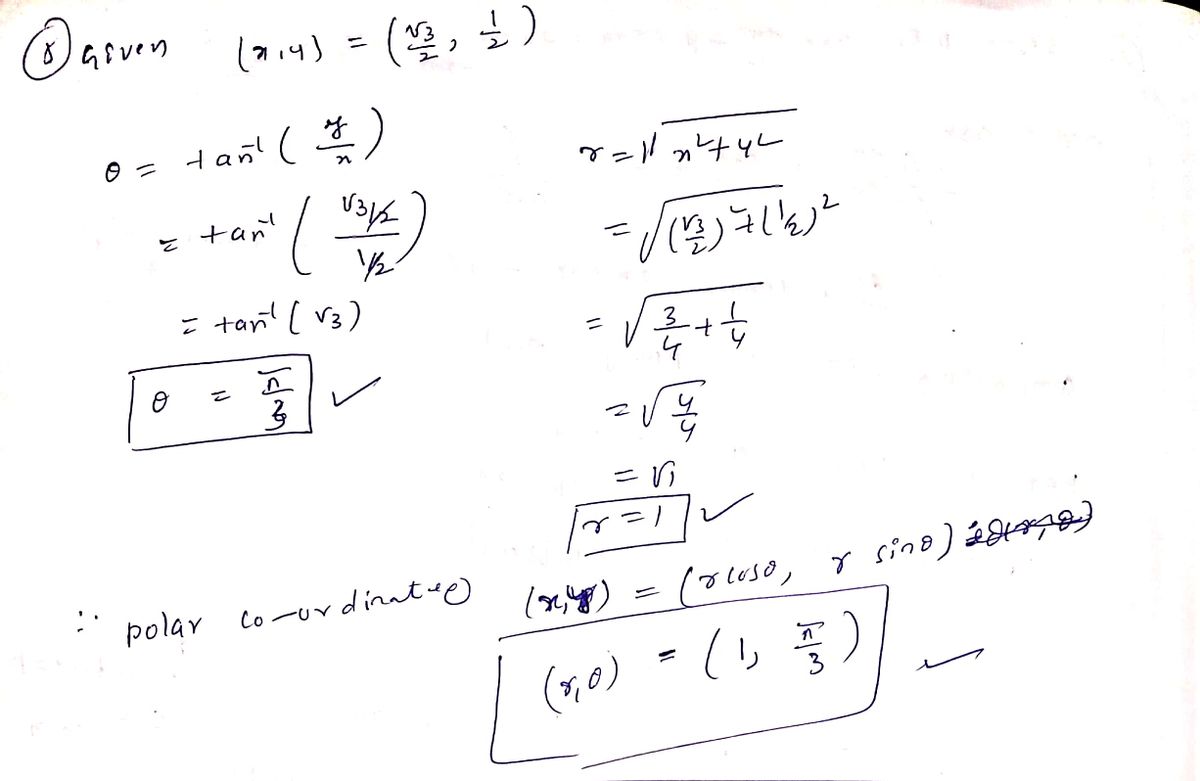 ⑧ Given (x,y) = (√3/2, 1/2)
θ = tan⁻¹ ( y/x )
= tan⁻¹ ( (√3/2) / (1/2) )
= tan⁻¹ ( √3 )
θ = π/3 ✓
r = √ x² + y²
= √ (√3/2)² + (1/2)²
= √ 3/4 + 1/4
= √ 4/4
= √1
r = 1 ✓
∴ polar co-ordinates (x,y) = (r cosθ, r sinθ)
(r,θ) = (1, π/3) ✓